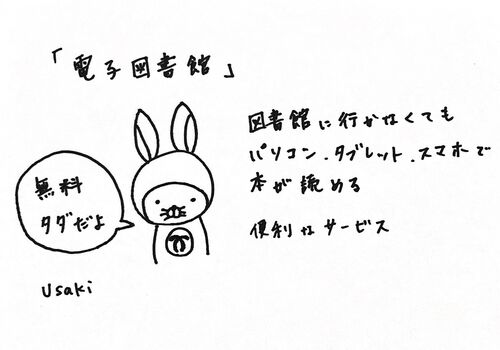 「電子図書館」
図書館に行かなくても
パソコン、タブレット、スマホで
本が読める
便利なサービス
無料
タダだよ
Usaki